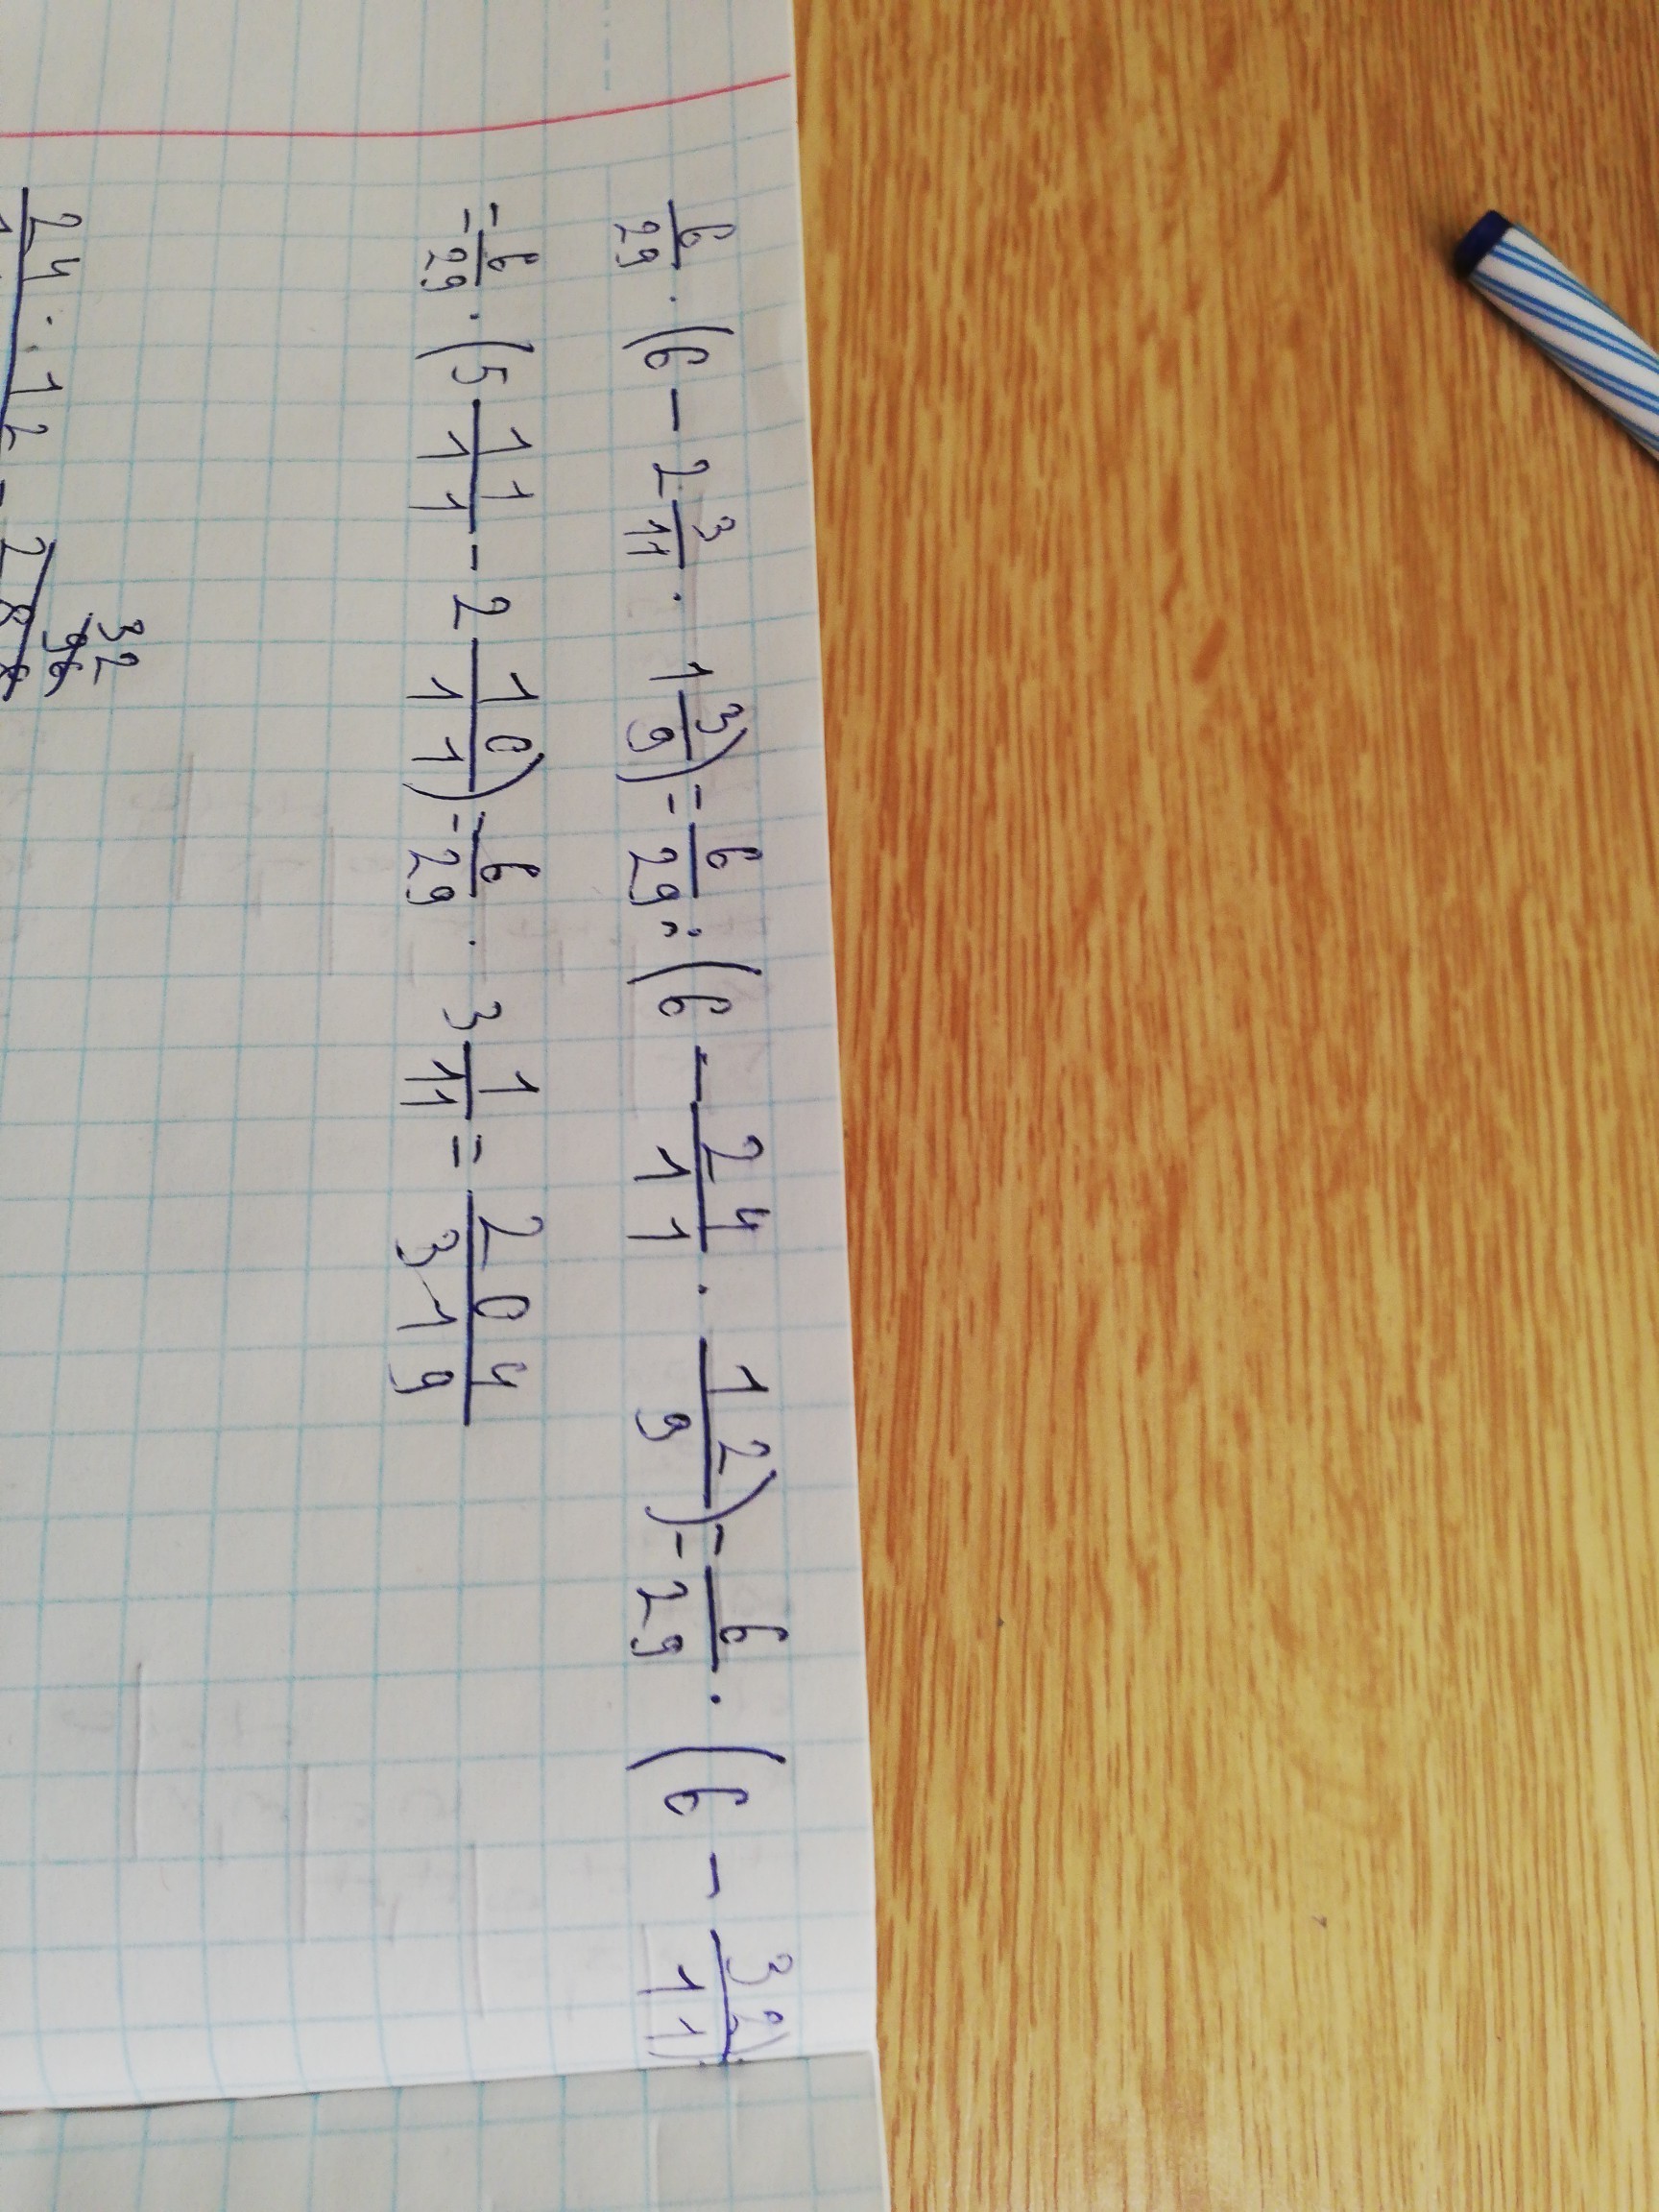 6/29 · (6 - 2 3/11 · 1 3/9) = 6/29 · (6 - 24/11 · 12/9) = 6/29 · (6 - 32/11) =
= 6/29 · (5 11/11 - 2 10/11) = 6/29 · 3 1/11 = 204/319
24 · 12
32
96